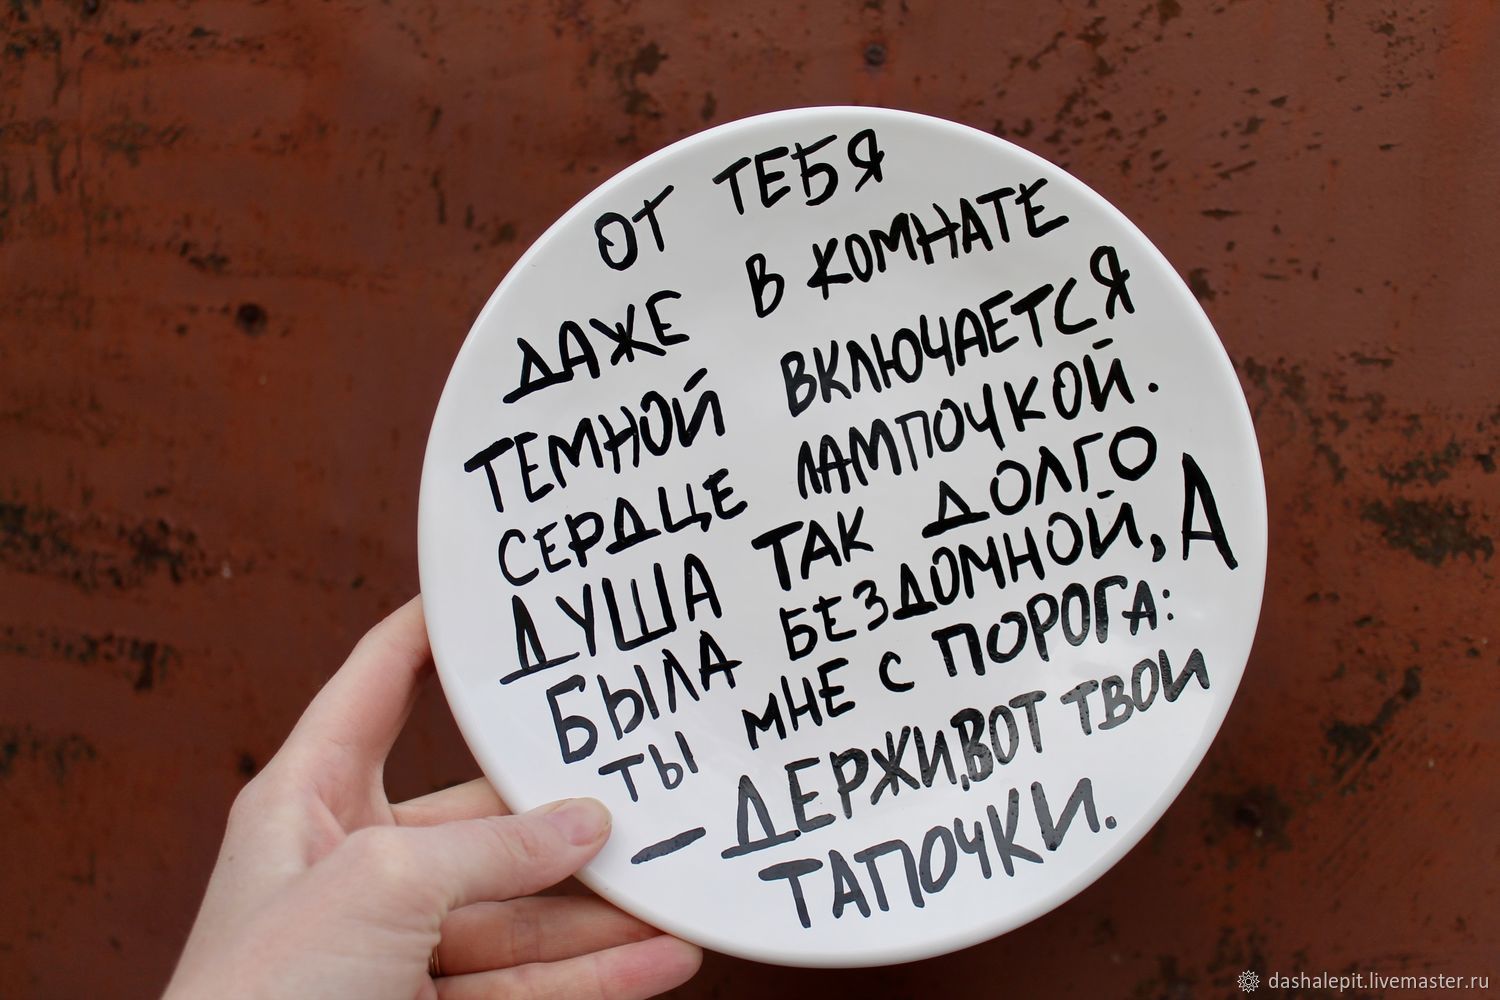 ОТ ТЕБЯ
ДАЖЕ В КОМНАТЕ
ТЕМНОЙ ВКЛЮЧАЕТСЯ
СЕРДЦЕ ЛАМПОЧКОЙ.
ДУША ТАК ДОЛГО
БЫЛА БЕЗДОМНОЙ, А
ТЫ МНЕ С ПОРОГА:
— ДЕРЖИ, ВОТ ТВОИ
ТАПОЧКИ.
dashalepit.livemaster.ru